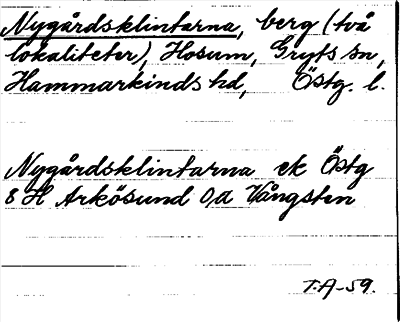 Nygårdsklintarna, berg (två
lokaliteter), Hosum, Gryts sn,
Hammarkinds hd, Östg. l.
Nygårdsklintarna ek Östg
8 H Arkösund 0,d Vångsten
T.A-59.